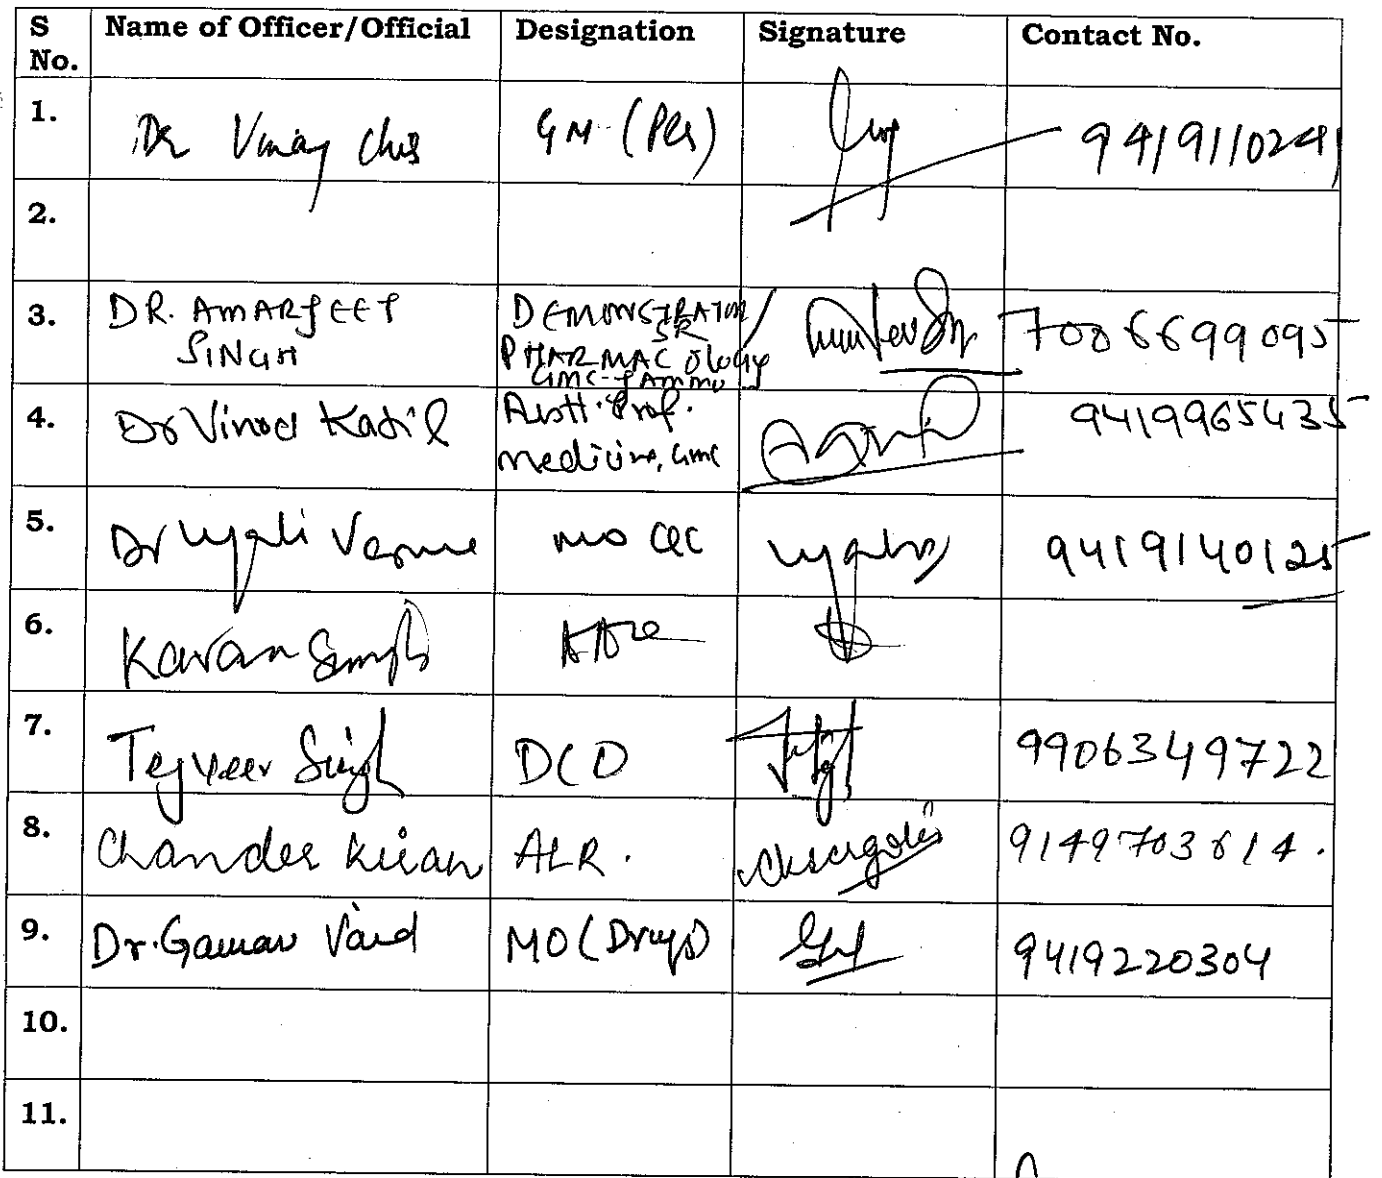 S No. Name of Officer/Official Designation Signature Contact No.
1. Dr Vinay GM (P&S) 9419110241
2.
3. DR. AMARJEET SINGH DEMONSTRATOR SR PHARMACOLOGY GMC-JAMMU 7006699095
4. Dr Vinod Kapil Asstt. Prof. Medicine, GMC 9419965435
5. Dr Verma MO QC 9419140125
6. Karan Singh
7. Tejveer Singh DCO 9906349722
8. Chander Kiran ALR. 9149703614.
9. Dr. Gaurav Vaid MO (Drugs) 9419220304
10.
11.